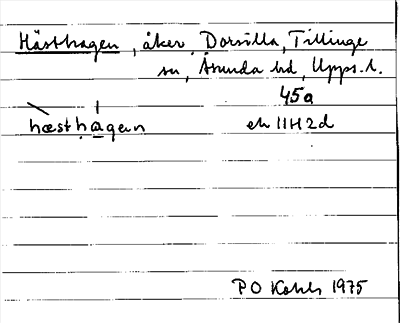 Hästhagen, åker, Dorsilla, Tillinge
sn, Åsunda hd, Upps. l.
45a
hæsthạgen
ek 11H2d
P O Kohls 1975